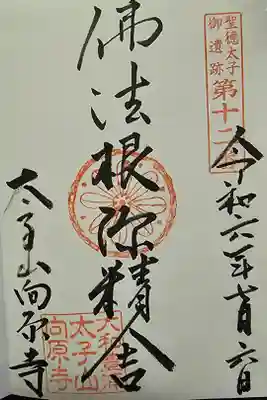 聖徳太子
御遺跡
第十二
令和六年月六日
佛法根源精舎
太子山向原寺
大和豊浦
太子山
向原寺